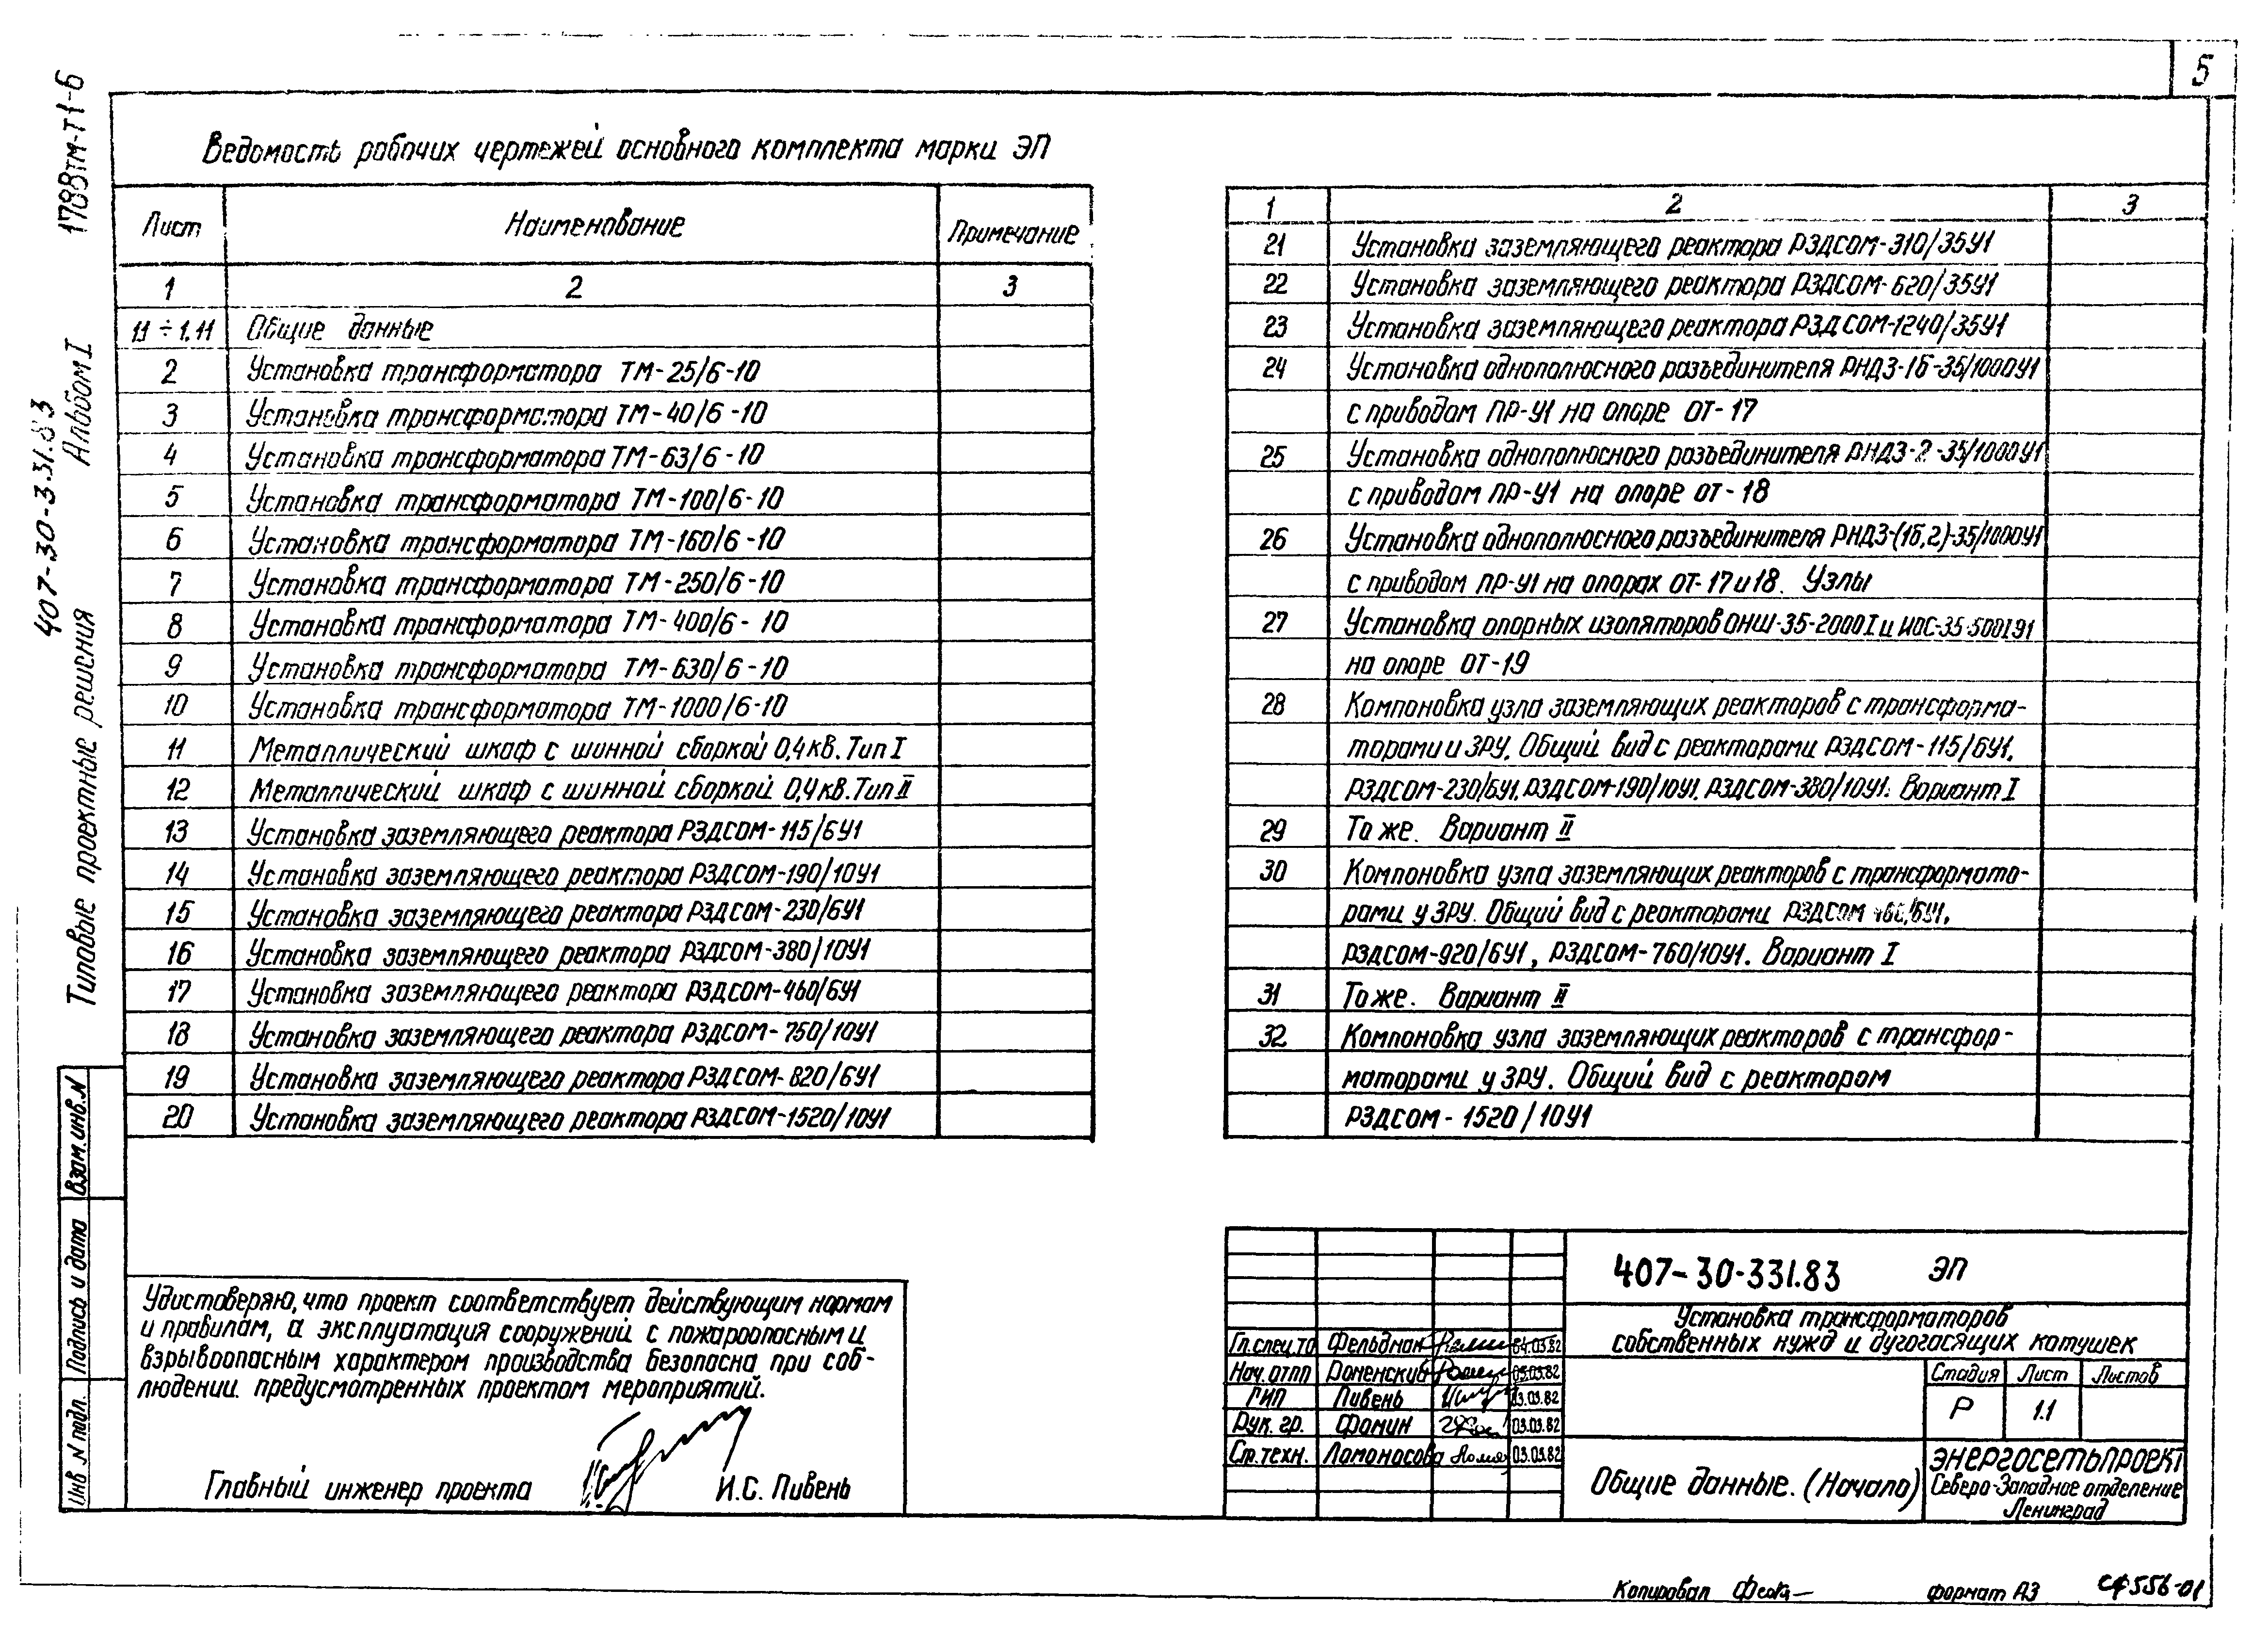 5
1788тм-Т1-6
407-30-3.31.83
Альбом I
Типовые проектные решения
Ведомость рабочих чертежей основного комплекта марки ЭП
Лист Наименование Примечание
1 2 3
1.1 ÷ 1.11 Общие данные
2 Установка трансформатора ТМ-25/6-10
3 Установка трансформатора ТМ-40/6-10
4 Установка трансформатора ТМ-63/6-10
5 Установка трансформатора ТМ-100/6-10
6 Установка трансформатора ТМ-160/6-10
7 Установка трансформатора ТМ-250/6-10
8 Установка трансформатора ТМ-400/6-10
9 Установка трансформатора ТМ-630/6-10
10 Установка трансформатора ТМ-1000/6-10
11 Металлический шкаф с шинной сборкой 0,4кв. Тип I
12 Металлический шкаф с шинной сборкой 0,4кв. Тип II
13 Установка заземляющего реактора РЗДСОМ-115/6У1
14 Установка заземляющего реактора РЗДСОМ-190/10У1
15 Установка заземляющего реактора РЗДСОМ-230/6У1
16 Установка заземляющего реактора РЗДСОМ-380/10У1
17 Установка заземляющего реактора РЗДСОМ-460/6У1
18 Установка заземляющего реактора РЗДСОМ-750/10У1
19 Установка заземляющего реактора РЗДСОМ-820/6У1
20 Установка заземляющего реактора РЗДСОМ-1520/10У1
1 2 3
21 Установка заземляющего реактора РЗДСОМ-310/35У1
22 Установка заземляющего реактора РЗДСОМ-620/35У1
23 Установка заземляющего реактора РЗДСОМ-1240/35У1
24 Установка однополюсного разъединителя РНДЗ-1б-35/1000У1
с приводом ПР-У1 на опоре ОТ-17
25 Установка однополюсного разъединителя РНДЗ-2-35/1000У1
с приводом ПР-У1 на опоре ОТ-18
26 Установка однополюсного разъединителя РНДЗ-(1б,2)-35/1000У1
с приводом ПР-У1 на опорах ОТ-17 и 18. Узлы
27 Установка опорных изоляторов ОНШ-35-2000I и ИОС-35-500I У1
на опоре ОТ-19
28 Компоновка узла заземляющих реакторов с трансформа-
торами и ЗРУ. Общий вид с реакторами РЗДСОМ-115/6У1,
РЗДСОМ-230/6У1, РЗДСОМ-190/10У1, РЗДСОМ-380/10У1. Вариант I
29 То же. Вариант II
30 Компоновка узла заземляющих реакторов с трансформато-
рами у ЗРУ. Общий вид с реакторами РЗДСОМ /6У1,
РЗДСОМ-920/6У1, РЗДСОМ-760/10У1. Вариант I
31 То же. Вариант II
32 Компоновка узла заземляющих реакторов с трансфор-
маторами у ЗРУ. Общий вид с реактором
РЗДСОМ-1520/10У1
Взам. инв. N
Подпись и дата
Инв N подл.
Удостоверяю, что проект соответствует действующим нормам
и правилам, а эксплуатация сооружений с пожароопасным и
взрывоопасным характером производства безопасна при соб-
людении предусмотренных проектом мероприятий.
Главный инженер проекта И.С. Пивень
407-30-331.83 ЭП
Установка трансформаторов
собственных нужд и дугогасящих катушек
Гл. спец. то Фельдман 04.03.82
Нач. отпп Роменский 03.03.82
ГИП Пивень 03.03.82
Рук. гр. Фомин 03.03.82
Ст. техн. Ломоносова 03.03.82
Стадия Лист Листов
Р 1.1
Общие данные. (Начало)
ЭНЕРГОСЕТЬПРОЕКТ
Северо-Западное отделение
Ленинград
Копировал формат А3 СФ556-01